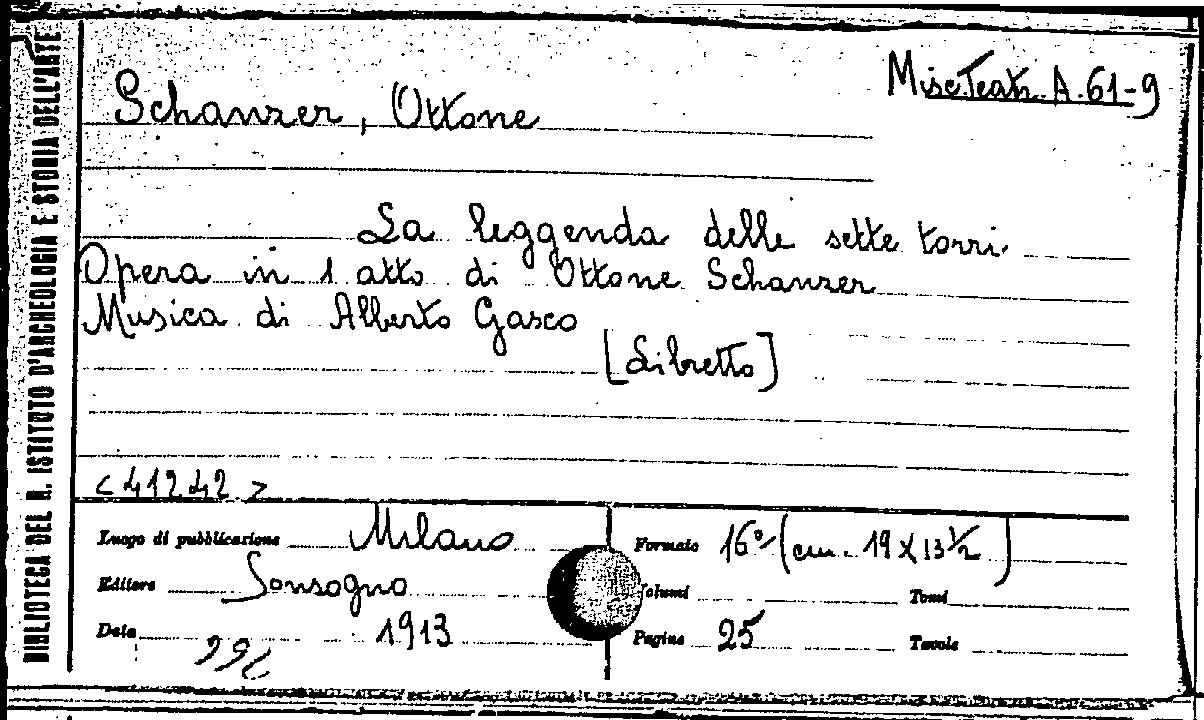 BIBLIOTECA DEL R. ISTITUTO D'ARCHEOLOGIA E STORIA DELL'ARTE
Misc. Teatr. A. 61-9
Schanzer, Ottone
La leggenda delle sette torri.
Opera in 1 atto di Ottone Schanzer
Musica di Alberto Gasco
[Libretto]
<41242>
Luogo di pubblicazione Milano
Editore Sonsogno
Data 1913
Formato 16° (cm. 19 X 13½)
Volumi
Tomi
Pagine 25
Tavole